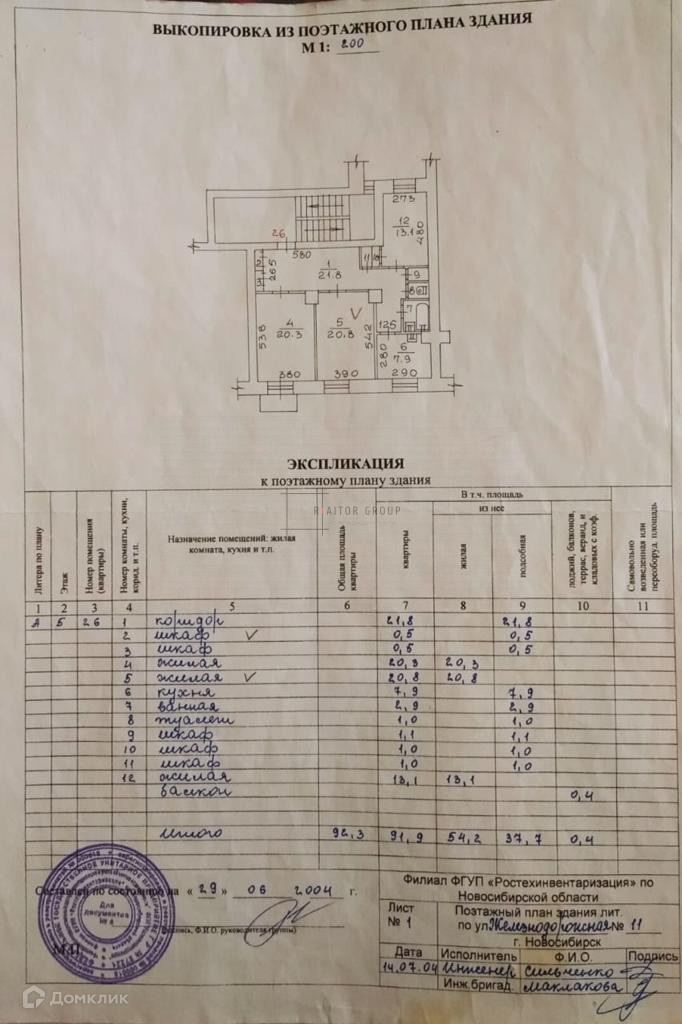 ВЫКОПИРОВКА ИЗ ПОЭТАЖНОГО ПЛАНА ЗДАНИЯ
М 1: 200
273
12
13.1
480
26
580
1
21.8
265
2
3
11
10
9
8
7
4
20.3
538
380
5
20.8
542
390
125
280
6
7.9
290
ЭКСПЛИКАЦИЯ
к поэтажному плану здания
REALTOR GROUP
Литера по плану
Этаж
Номер помещения (квартиры)
Номер комнаты, кухни, корид. и т.п.
Назначение помещений: жилая комната, кухня и т.п.
Общая площадь квартиры
В т.ч. площадь
из нее
квартиры
жилая
подсобная
лоджий, балконов, террас, веранд, и кладовых с коэф.
Самовольно возведенная или переоборуд. площадь
1 2 3 4 5 6 7 8 9 10 11
А 5 26 1 коридор 21,8 21,8
2 шкаф 0,5 0,5
3 шкаф 0,5 0,5
4 жилая 20,3 20,3
5 жилая 20,8 20,8
6 кухня 7,9 7,9
7 ванная 2,9 2,9
8 туалет 1,0 1,0
9 шкаф 1,1 1,1
10 шкаф 1,0 1,0
11 шкаф 1,0 1,0
12 жилая 13,1 13,1
балкон 0,4
итого 92,3 91,9 54,2 37,7 0,4
Составлен по состоянию на « 29 » 06 2004 г.
(подпись, Ф.И.О. руководителя группы)
М.П.
Для документов № 4
Филиал ФГУП «Ростехинвентаризация» по Новосибирской области
Лист № 1
Поэтажный план здания лит.
по ул Железнодорожная № 11
г. Новосибирск
Дата Исполнитель Ф.И.О. Подпись
14.07.04 Инженер Сильченко
Инж.бригад. Маклакова
Домклик